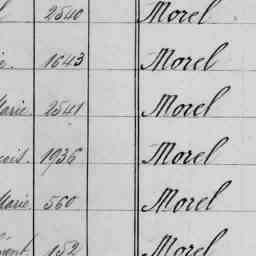 2540 Morel
1643 Morel
Marie. 2541 Morel
çois. 1936 Morel
Marie. 560 Morel
ment. 152 Morel